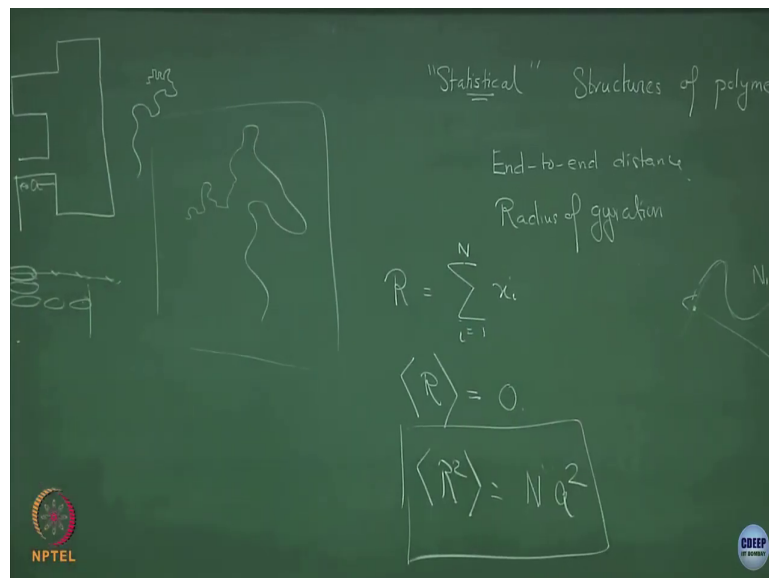 "Statistical" Structures of polyme
End-to-end distance
Radius of gyration
R = \sum_{i=1}^{N} x_i
⟨R⟩ = 0.
⟨R²⟩ = N a²
a
N
NPTEL
CDEEP
IIT BOMBAY